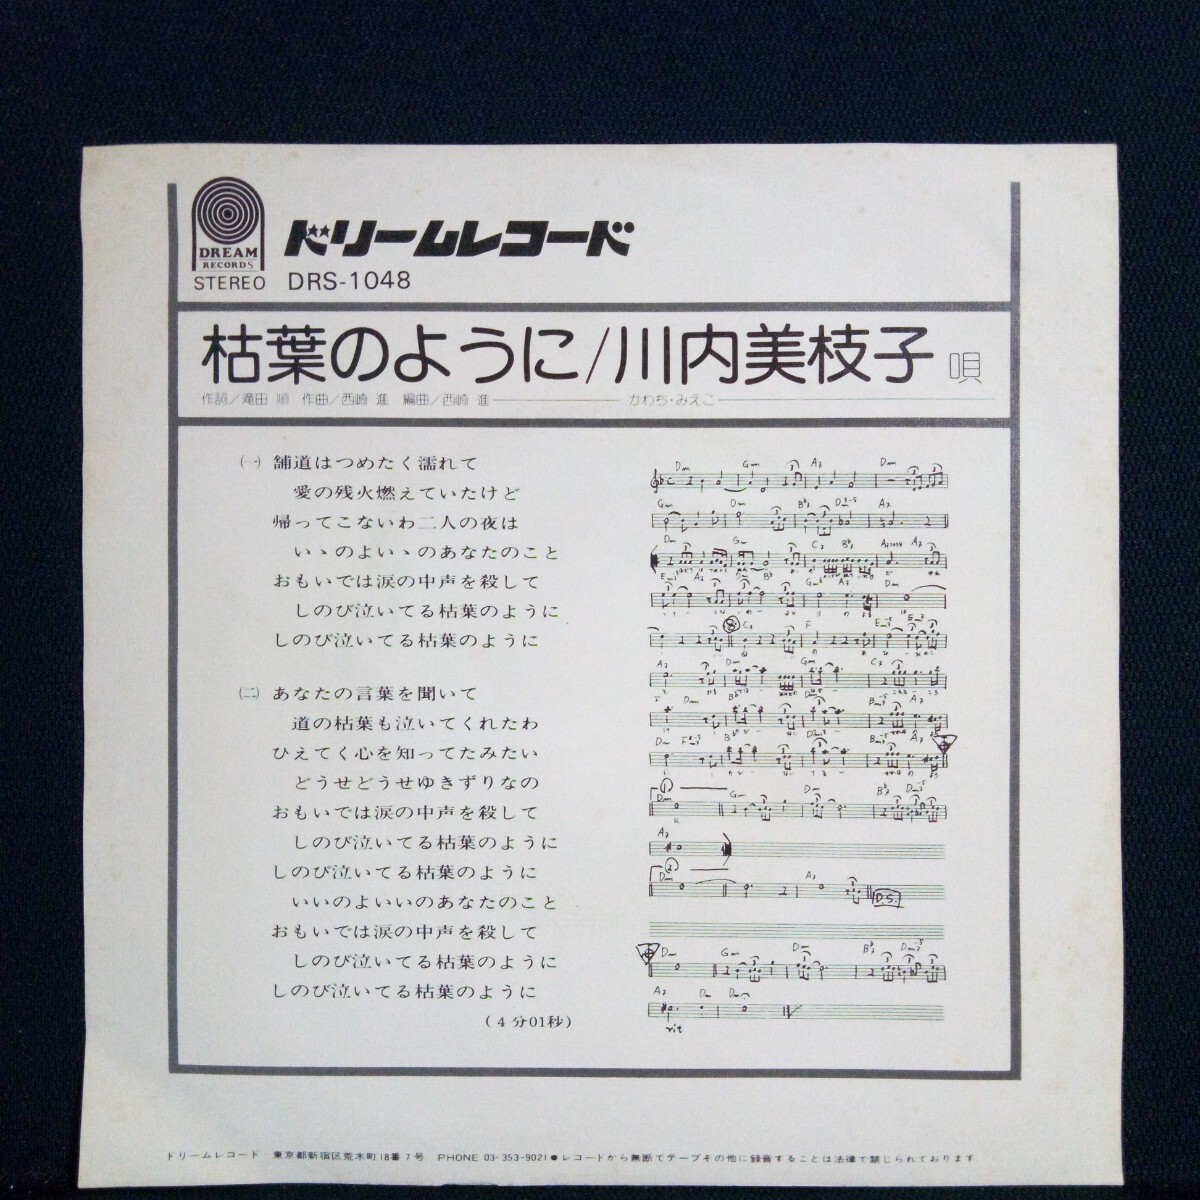 DREAM
RECORDS
ドリームレコード
STEREO DRS-1048
枯葉のように/川内美枝子 唄
作詞/滝田 順 作曲/西崎 進 編曲/西崎 進 かわち・みえこ
(一) 舗道はつめたく濡れて
愛の残火燃えていたけど
帰ってこないわ二人の夜は
いゝのよいゝのあなたのこと
おもいでは涙の中声を殺して
しのび泣いてる枯葉のように
しのび泣いてる枯葉のように
(二) あなたの言葉を聞いて
道の枯葉も泣いてくれたわ
ひえてく心を知ってたみたい
どうせどうせゆきずりなの
おもいでは涙の中声を殺して
しのび泣いてる枯葉のように
しのび泣いてる枯葉のように
いいのよいいのあなたのこと
おもいでは涙の中声を殺して
しのび泣いてる枯葉のように
しのび泣いてる枯葉のように
(4分01秒)
Dm Gm A7 Dm
D.S.
rit
ドリームレコード 東京都新宿区荒木町18番7号 PHONE 03-353-9021●レコードから無断でテープその他に録音することは法律で禁じられております